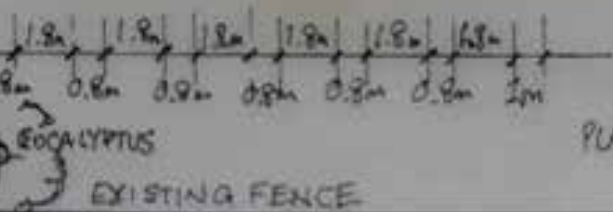 1.8m 1.8m 1.8m 1.8m 1.8m 1.8m
8m 0.8m 0.8m 0.8m 0.8m 0.8m 1m
EOCALYPTUS PU
EXISTING FENCE